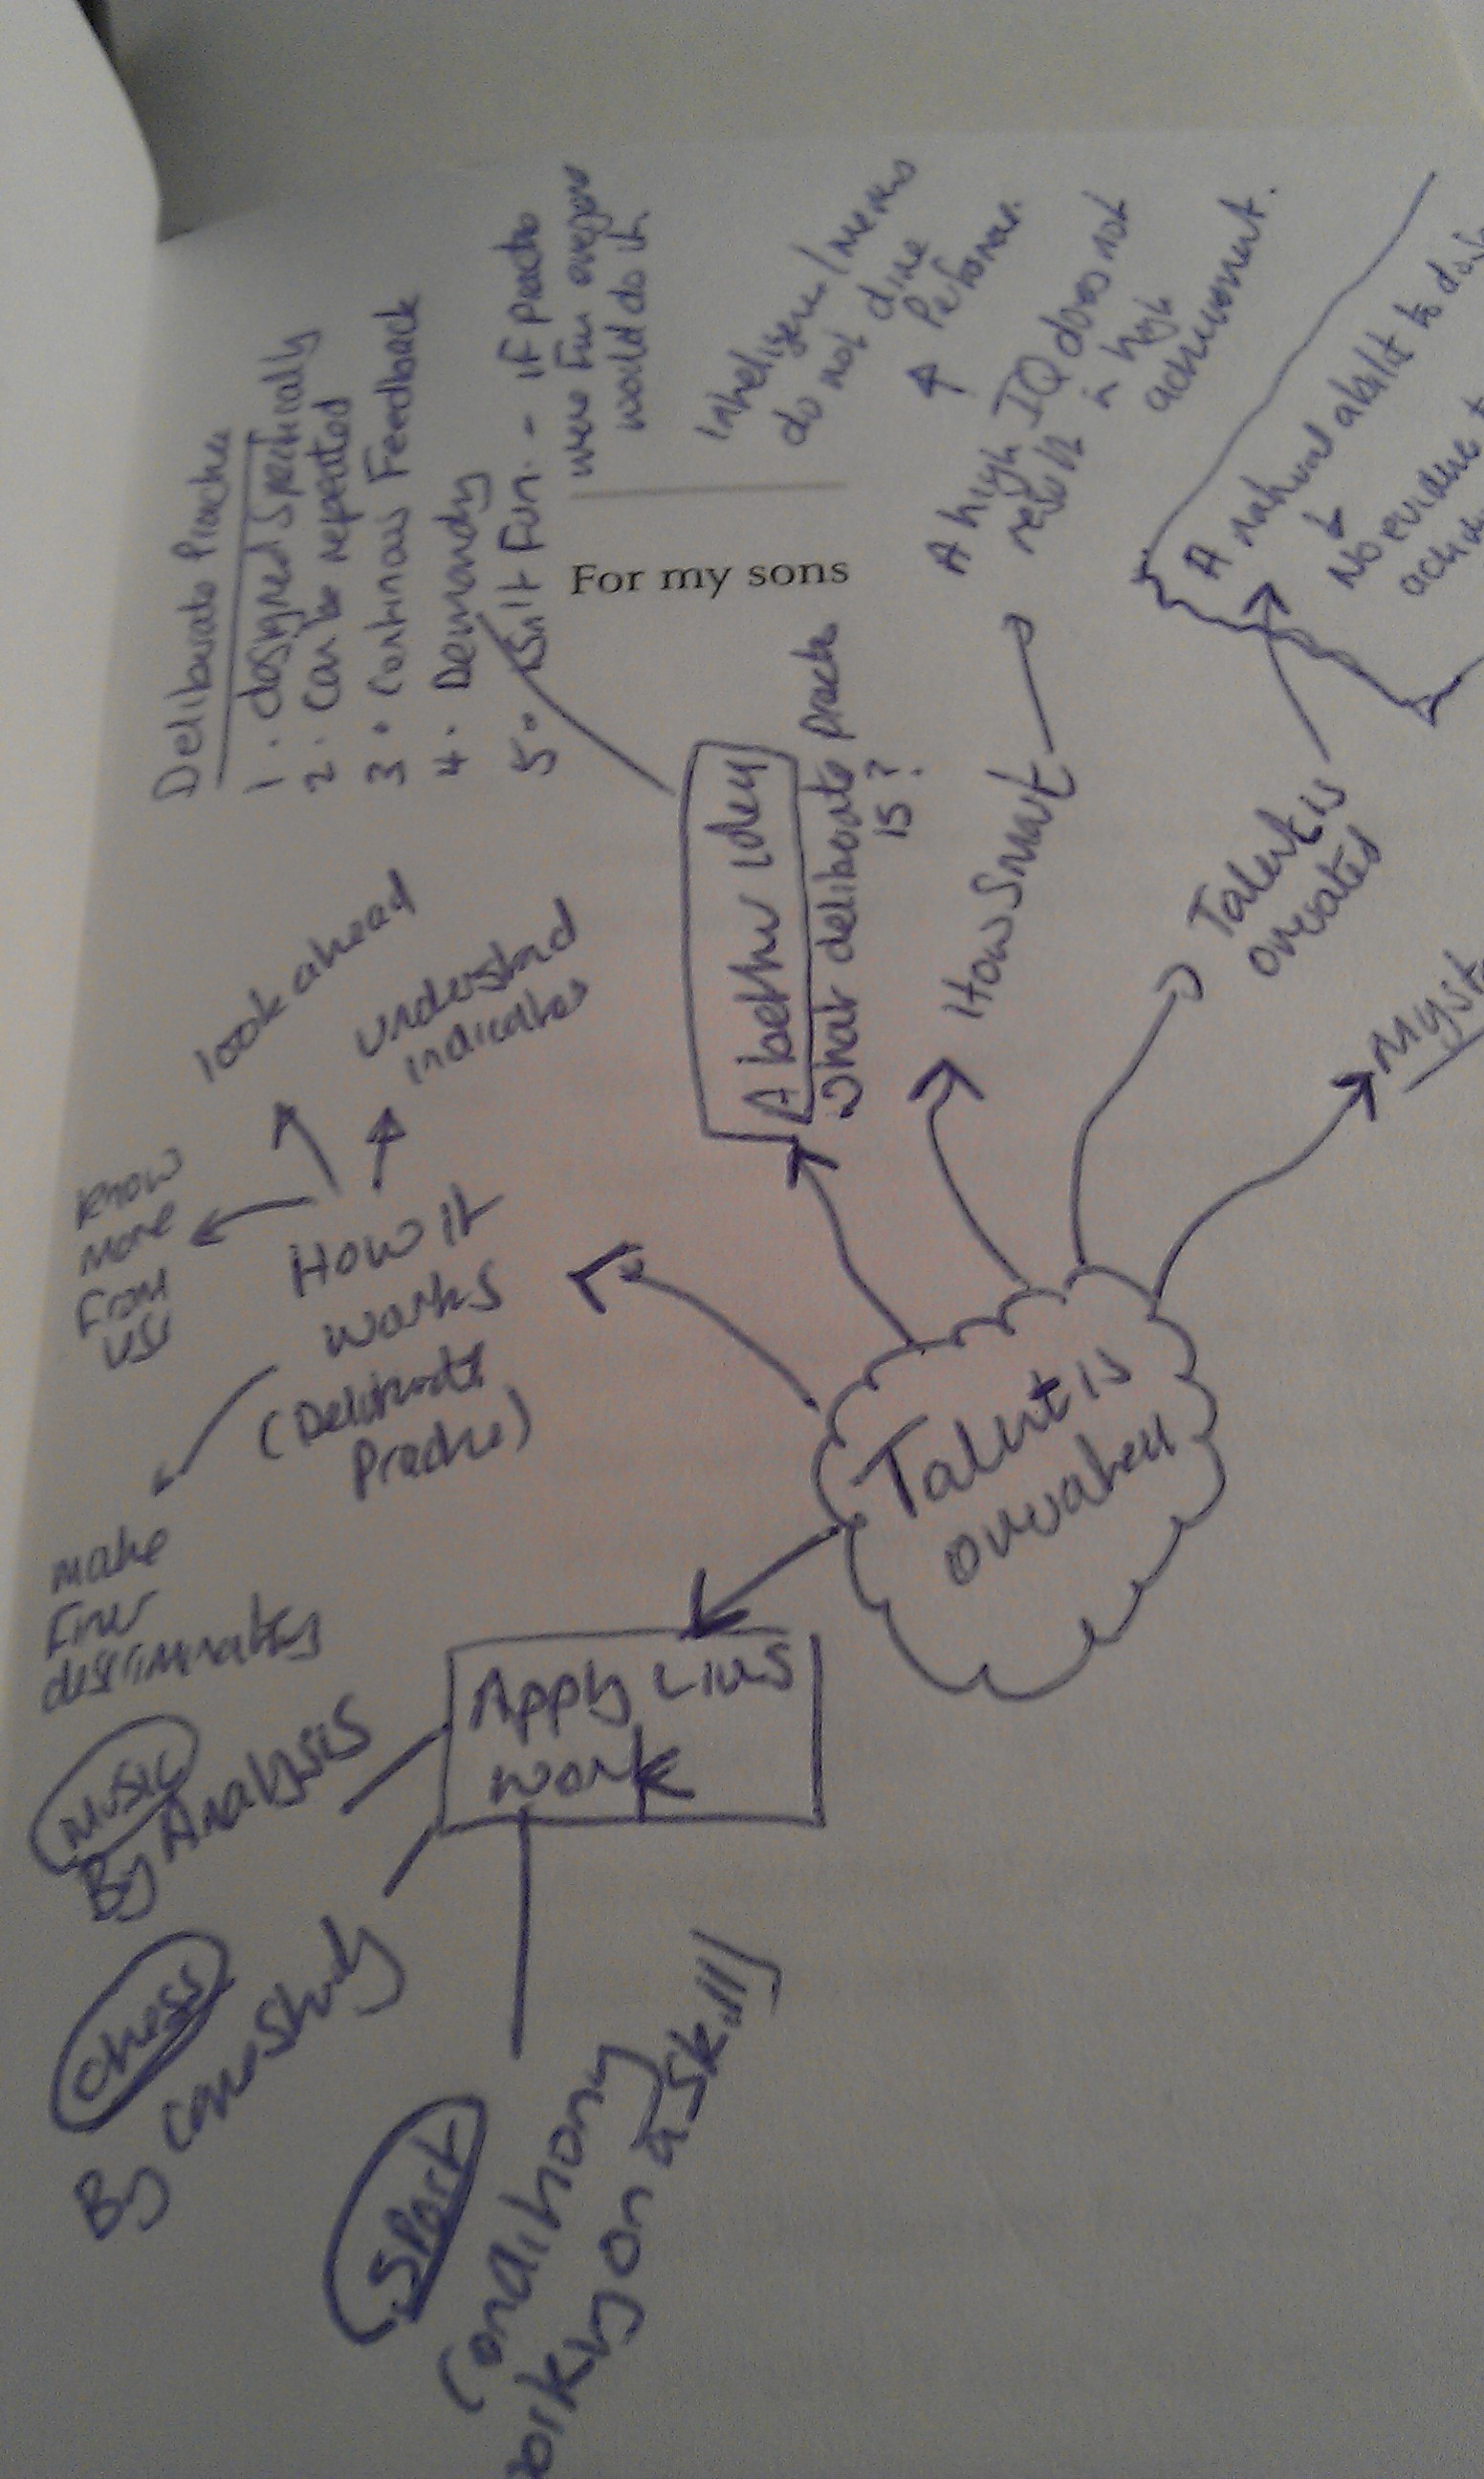 Deliburate Practice
1. designed specifically
2. Can be repeated
3. Continous Feedback
4. Demanding
5. Isn't Fun. - if practice
were fun everyone
would do it
For my sons
Inteligence / memory
do not drive
Performance.
A high IQ does not
result in high
achievement.
A natural to
No evidence
A better idea
What deliborate practice
is?
How Smart
Talent is
overated
look ahead
understand
indicators
Know
More
From
How it
works
(Deliberate
Practice)
make
Finer
discriminations
Talent is
overated
Apply
work
Music
By Analysis
Chess
By Case Study
Sport
Conditioning
on a skill)